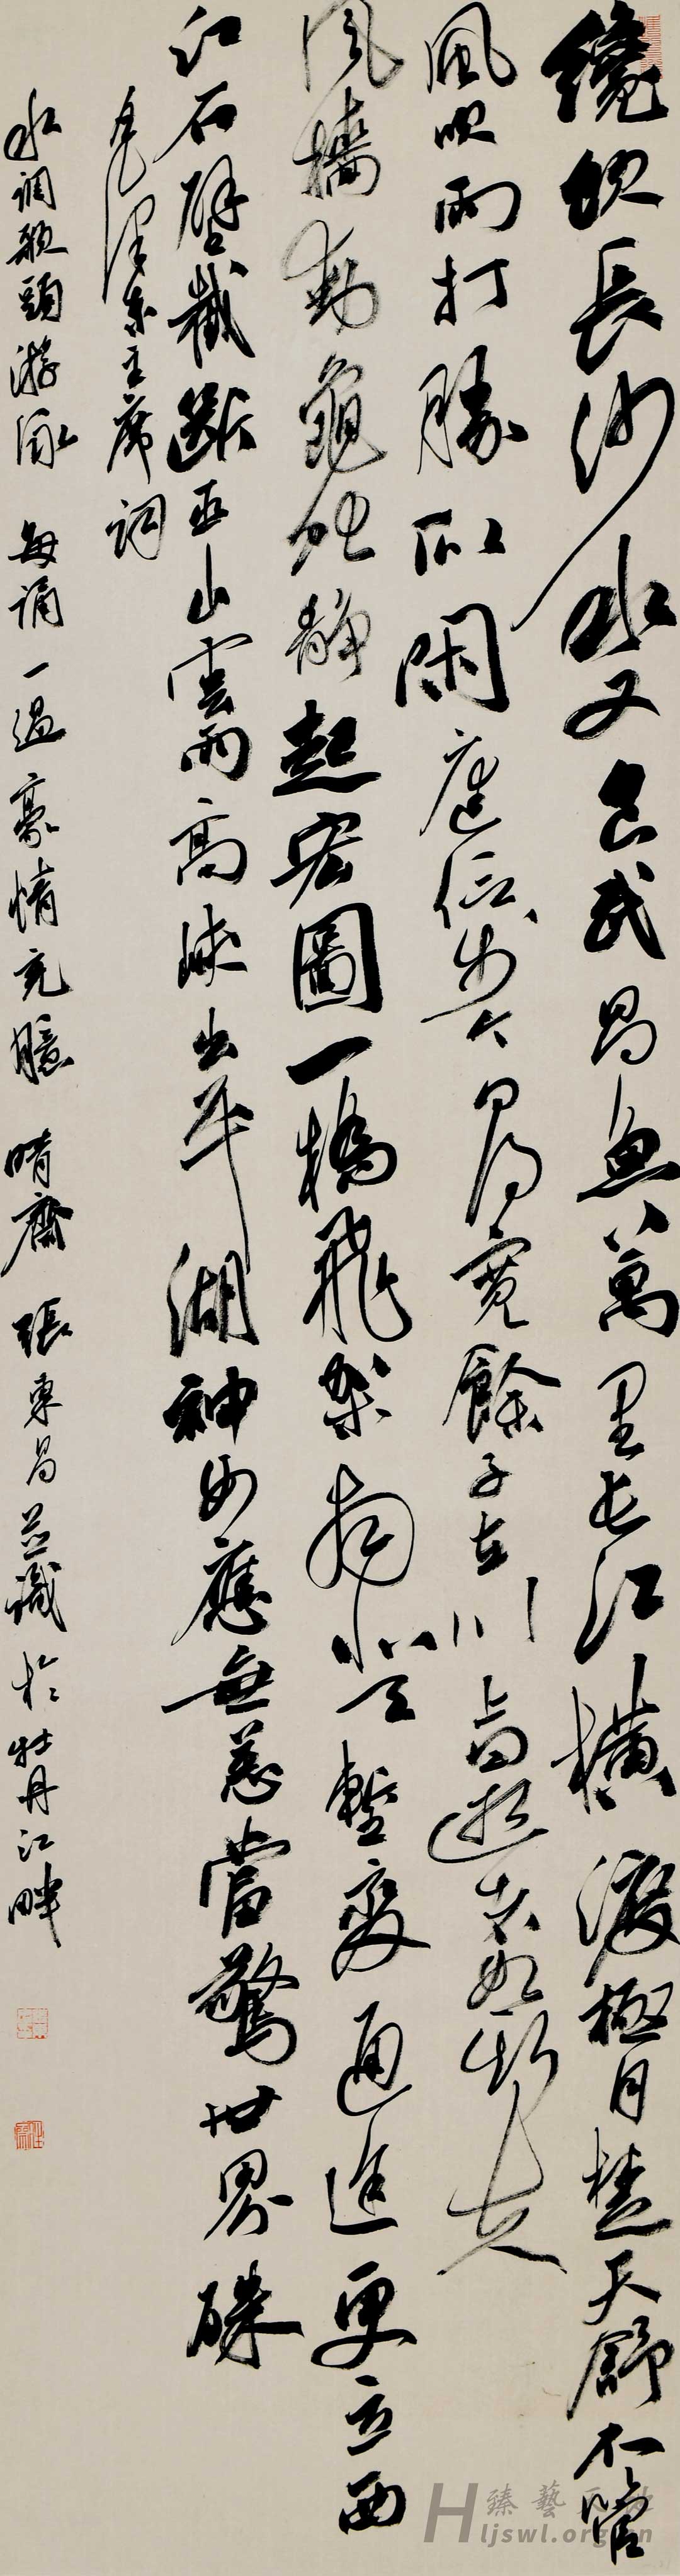 纔飲長沙水又食武昌魚萬里長江橫渡極目楚天舒不管
風吹雨打勝似閑庭信步今日得寬餘子在川上曰逝者如斯夫
風檣動龜蛇靜起宏圖一橋飛架南北天塹變通途更立西
江石壁截斷巫山雲雨高峽出平湖神女應無恙當驚世界殊
毛澤東主席詞
水調歌頭游泳 每誦一過豪情充臆 晴齋 張東昌并識於牡丹江畔
臻藝
Hljswl.org.cn